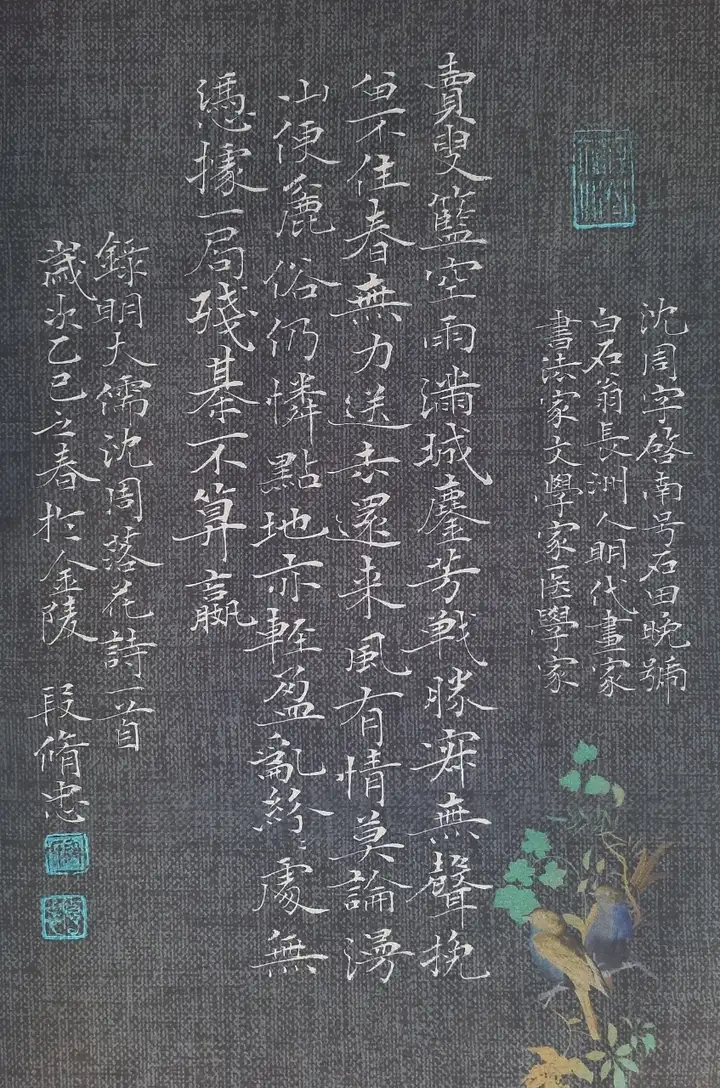 沈周字啓南号石田晚號
白石翁長洲人明代畫家
書法家文學家医學家
賣叟籃空雨滿城鏖芳戦勝寂無聲挽
留不住春無力送去還来風有情莫論漫
山便麄俗仍憐點地亦輕盈亂紛〻處無
憑據一局殘棊不算贏
錄明大儒沈周落花詩一首
歲次乙巳立春於金陵 段脩忠